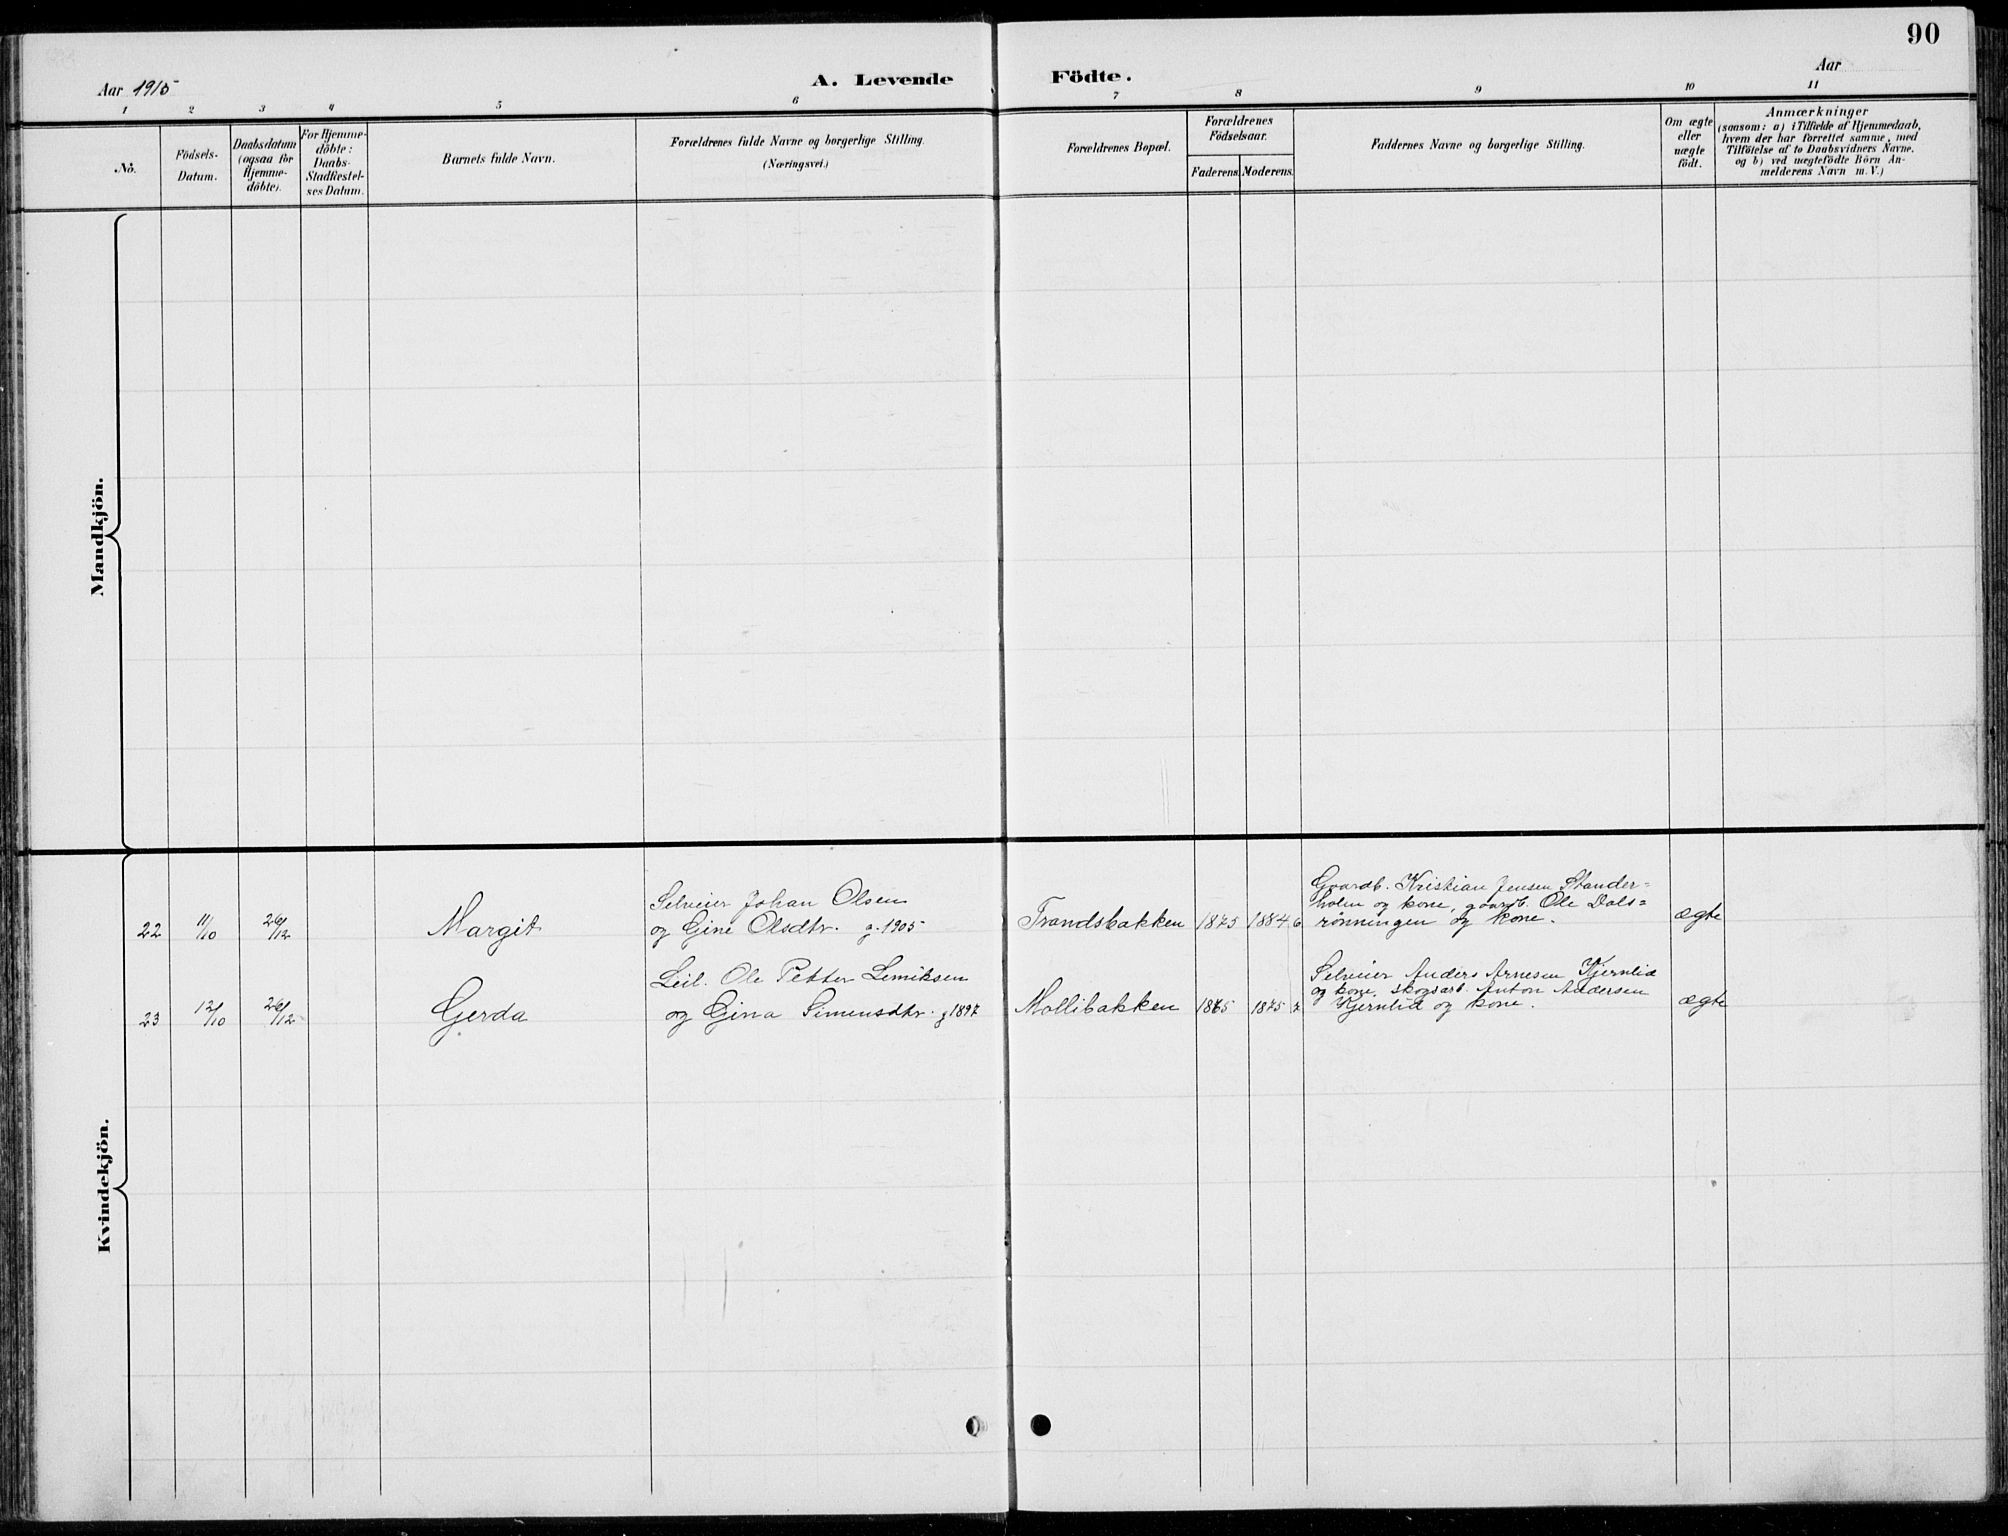 90
Aar 1915
A. Levende Födte.
Aar
1 2 3 4 5 6 7 8 9 10 11
No.
Födsels-
Datum.
Daabsdatum
(ogsaa for
Hjemme-
döbte).
For Hjemme-
döbte:
Daabs-
Stadfæstel-
ses Datum.
Barnets fulde Navn.
Forældrenes fulde Navne og borgerlige Stilling.
(Næringsvei.)
Forældrenes Bopæl.
Forældrenes
Födselsaar.
Faderens. Moderens.
Faddernes Navne og borgerlige Stilling.
Om ægte
eller
uægte
födt.
Anmærkninger
(saasom: a) i Tilfælde af Hjemmedaab,
hvem der har forrettet samme, med
Tilföielse af to Daabsvidners Navne,
og b) ved uægtefödte Börn An-
melderens Navn m. V.)
Mandkjön.
Kvindekjön.
22 11/10 26/12 Margit
Selveier Johan Olsen
og Gine Olsdtr. g. 1905
Trandsbakken 1875 1884 6
Gaardb. Kristian Jensen Stander=
holm og kone, gaardb. Ole Dals=
rönningen og kone.
ægte
23 12/10 26/12 Gerda
Leil. Ole Petter Lemiksen
og Gina Simensdtr. g 1897
Mollibakken 1865 1875 7
Selveier Anders Arnesen Kjernlid
og kone, skogsarb. Anton Andersen
Kjernlid og kone.
ægte